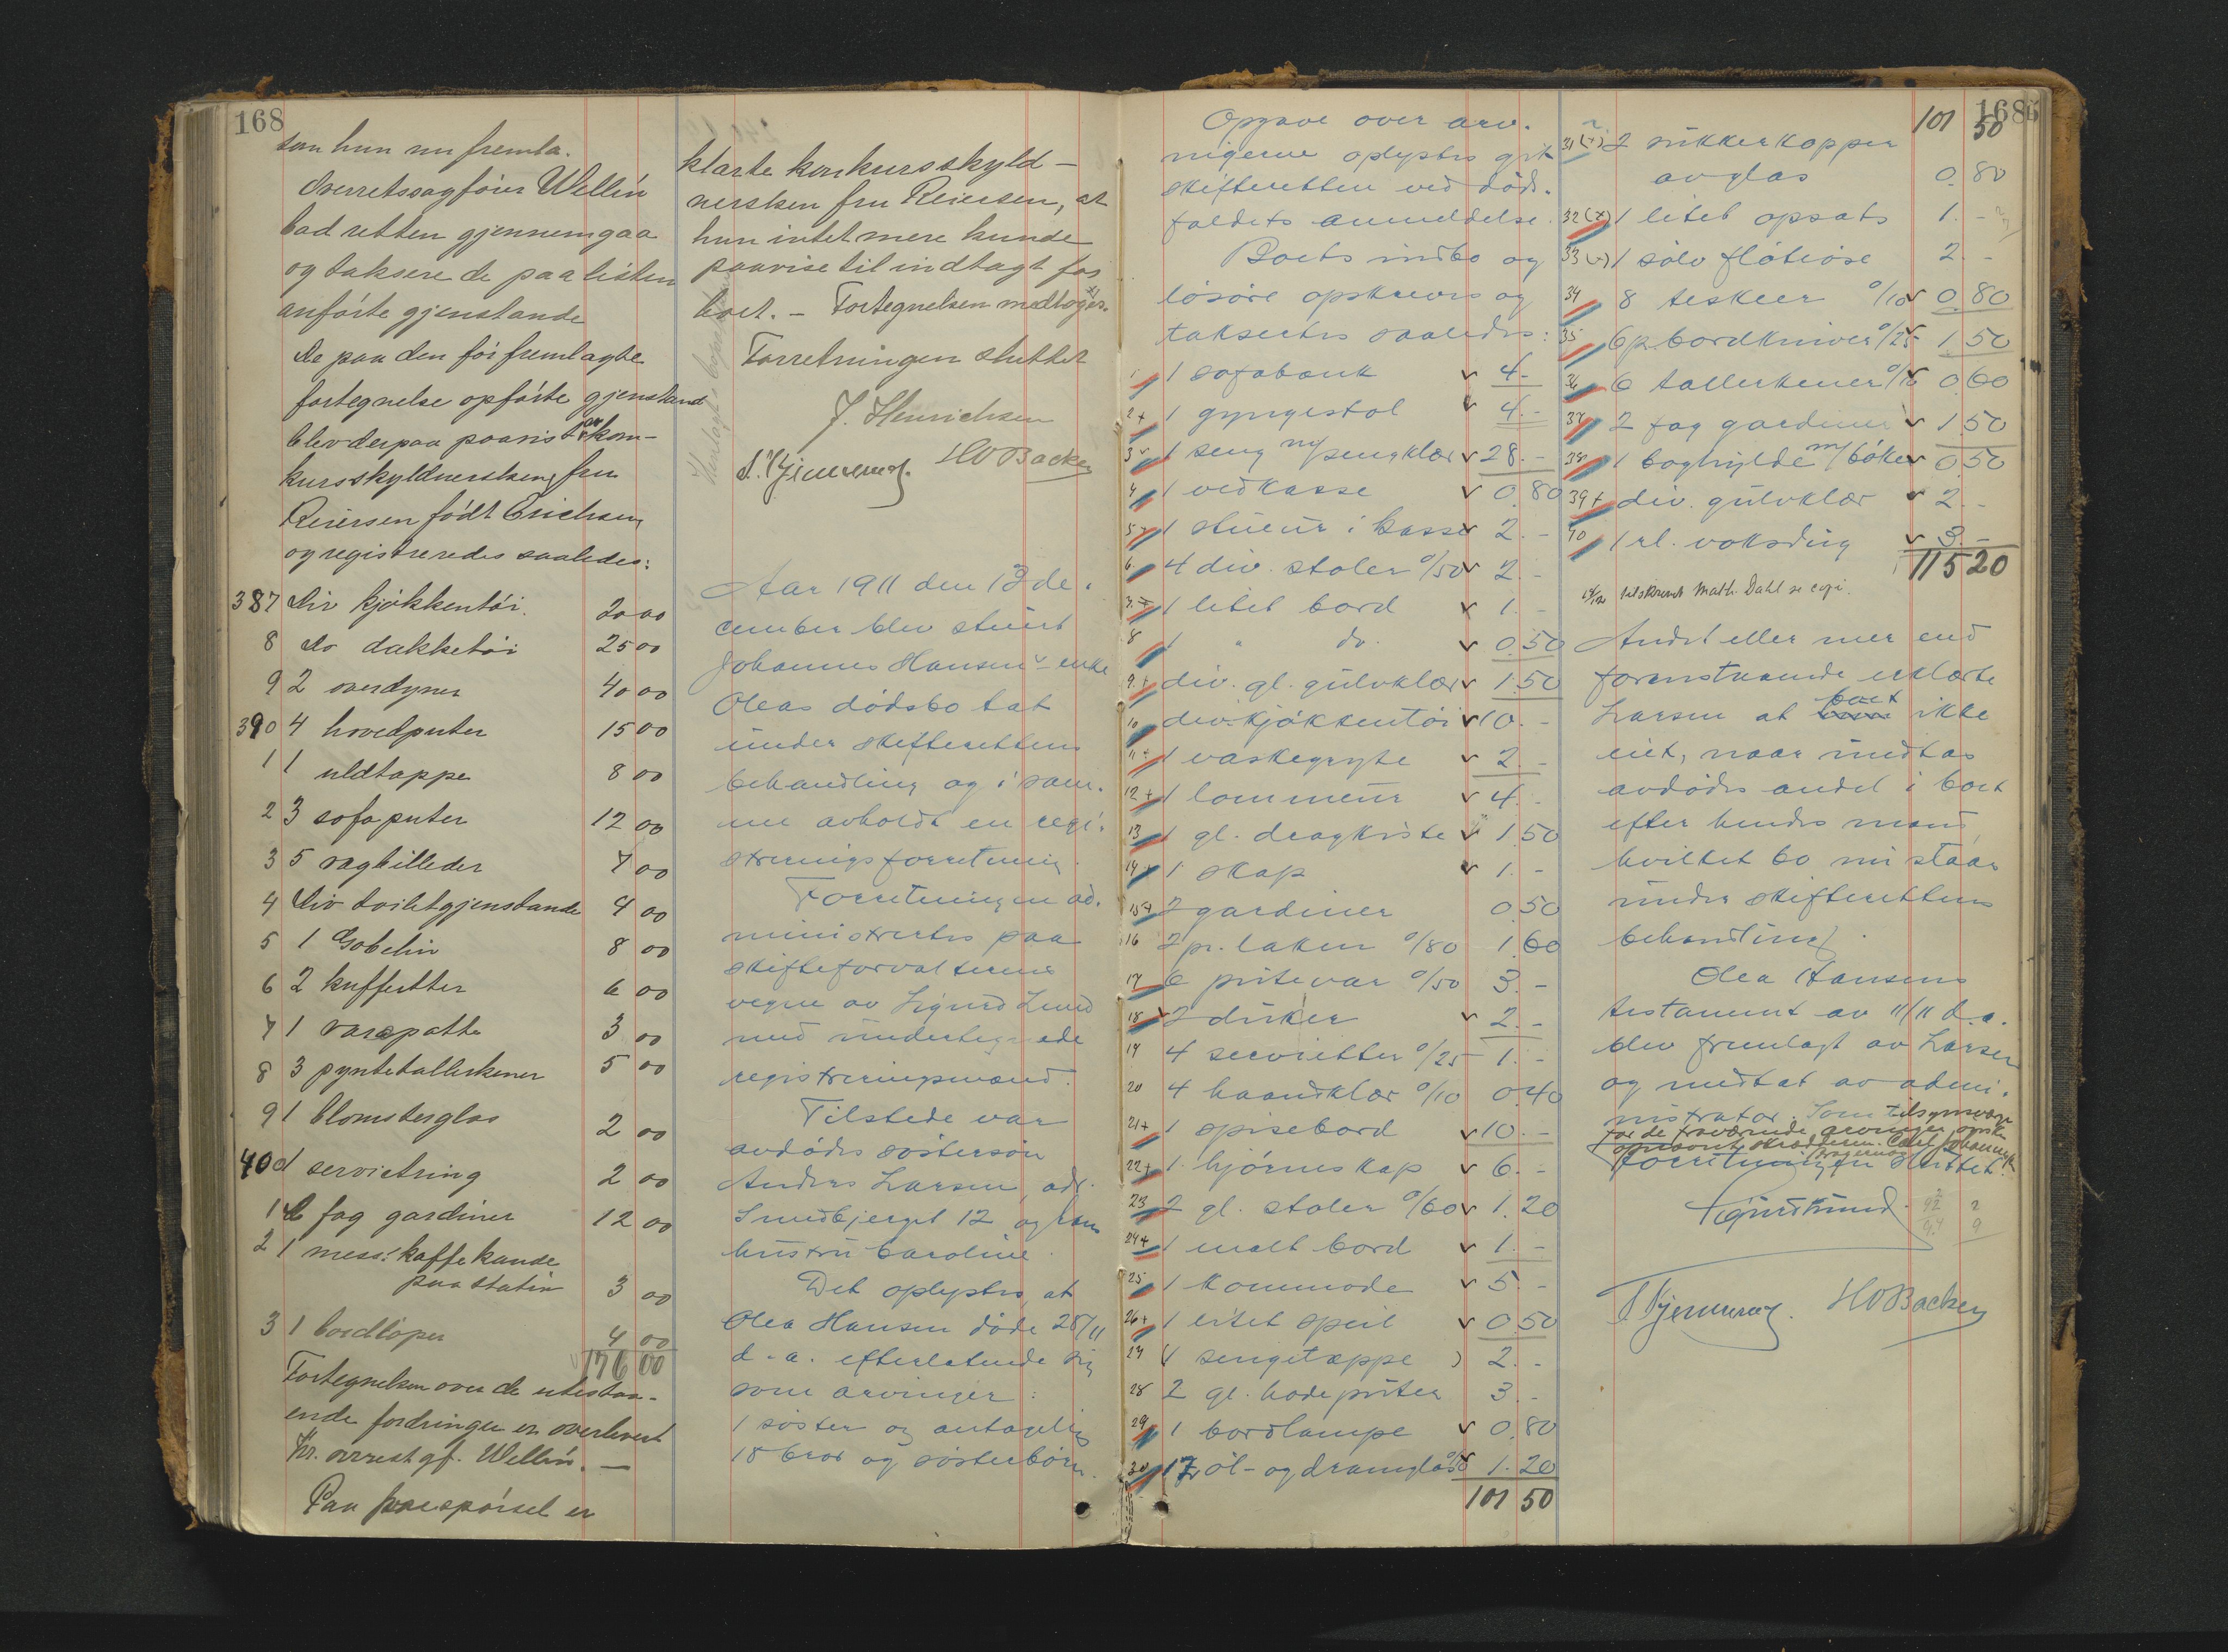 168
som hun nu fremla.
Overretssagfører Wellén
bad retten gjennemgaa
og taksere de paa listen
anførte gjenstande
De paa den før fremlagte
fortegnelse opførte gjenstand
blev derpaa paavist av kon-
kursskyldnersken, fru
Reiersen født Erichsen
og registreredes saaledes:
387 Div kjøkkentøi. 20 00
8 Do dækketøi 25 00
9 2 overdyner 40 00
390 4 hovedputer 15 00
1 1 uldtæppe 8 00
2 3 sofaputer 12 00
3 5 vægbilleder 7 00
4 Div toiletgjenstande 4 00
5 1 Gobelin 8 00
6 2 kufferter 6 00
7 1 3 00
8 3 pyntetallerkener 5 00
9 1 blomsterglas 2 00
400 servietring 2 00
1 6 fag gardiner 12 00
2 1 mess: kaffekande
paa stativ 3 00
3 1 bordløper 4 00
176 00
Fortegnelsen over de utestaa-
ende fordringer er overlevert
Hr. Wellén. —
Paa forespørsel er
klærte konkursskyld-
nersken fru Reiersen, at
hun intet mere hunde
paavise til indtægt for
boet. – Fortegnelsen medtoges.
Forretningen sluttet
J. Henrichsen
HO Backer
Aar 1911 den 13 de-
cember blev stuert
Johannes Hansens enke
Oleas dødsbo tat
under skifterettens
behandling og i sam-
me avholdt en regi-
streringsforretning.
Forretningen ad-
ministrertes paa
skifteforvalterens
vegne av Sigurd Lund
med undertegnede
registreringsmænd.
Tilstede var
avdødes søstersøn
Anders Larsen, adr.
Smedbjerget 12 og hans
hustru Caroline.
Det oplystes, at
Olea Hansen døde 25/11
d. a. efterlatende sig
som arvinger:
1 søster og antagelig
18 bror og søsterbørn.
Opgave over arv-
nigerne oplystes git
skifteretten ved døds-
faldets anmeldelse.
Boets indbo og
løsøre opskreves og
taksertes saaledes:
1 1 sofabænk 4.-
2+ 1 gyngestol 4.-
3 1 seng m/sengklær 28.-
4 1 vedkasse 0.80
5+ 1 stueur i kasse 2.-
6 4 div. stoler º/50 2.-
7+ 1 litet bord 1.-
8 1 " do. 0.50
9+ div. gl. gulvklær 1.50
10 div. kjøkkentøi 10.-
11+ 1 vaskegryte 2.-
12+ 1 lommeur 4.-
13 1 gl. dragkiste 1.50
14+ 1 skap 1.-
15+ 2 gardiner 0.50
16 2 pr. laken º/80 1.60
17 6 putevar º/50 3.-
18 2 duker 2.-
19 4 servietter º/25 1.-
20 4 haandklær º/10 0.40
21+ 1 spisebord 10.-
22+ 1 hjørneskap 6.-
23 2 gl. stoler º/60 1.20
24+ 1 malt bord 1.-
25 1 kommode 5.-
26+ 1 litet speil 0.50
27 (1 sengetæppe) 2.-
28 2 gl. hodeputer 3.-
29 1 bordlampe 0.80
30 12 øl- og dramglas 1.20
101 50
168
101 50
31(+) 2 sukkerkopper
av glas 0.80
32(+) 1 litet opsats 1.-
33 1 sølv fløteøse 2.-
34 8 teskeer º/10 0.80
35 6 p. bordkniver º/25 1.50
36 6 tallerkener º/10 0.60
37 2 fag gardiner 1.50
38 1 boghylde m/bøker 0.50
39+ div. gulvklær 2.-
40 1 rl. voksdug 3.-
115 20
tilskrevet Math. Dahl se copi.
Andet eller mer end
foranstaaende erklærte
Larsen at boet ikke
eiet, naar undtas
avdødes andel i boet
efter hendes mand,
hvilket bo nu staar
under skifterettens
behandling.
Olea Hansens
testament av 11/11 d.a.
blev fremlagt av Larsen
og medtat av admi-
nistrator. Som tilsynsværge
for de fraværende arvinger
opnævnt skrædderm. Carl Johannesen
Forretningen sluttet.
Sigurd Lund.
HO Backer